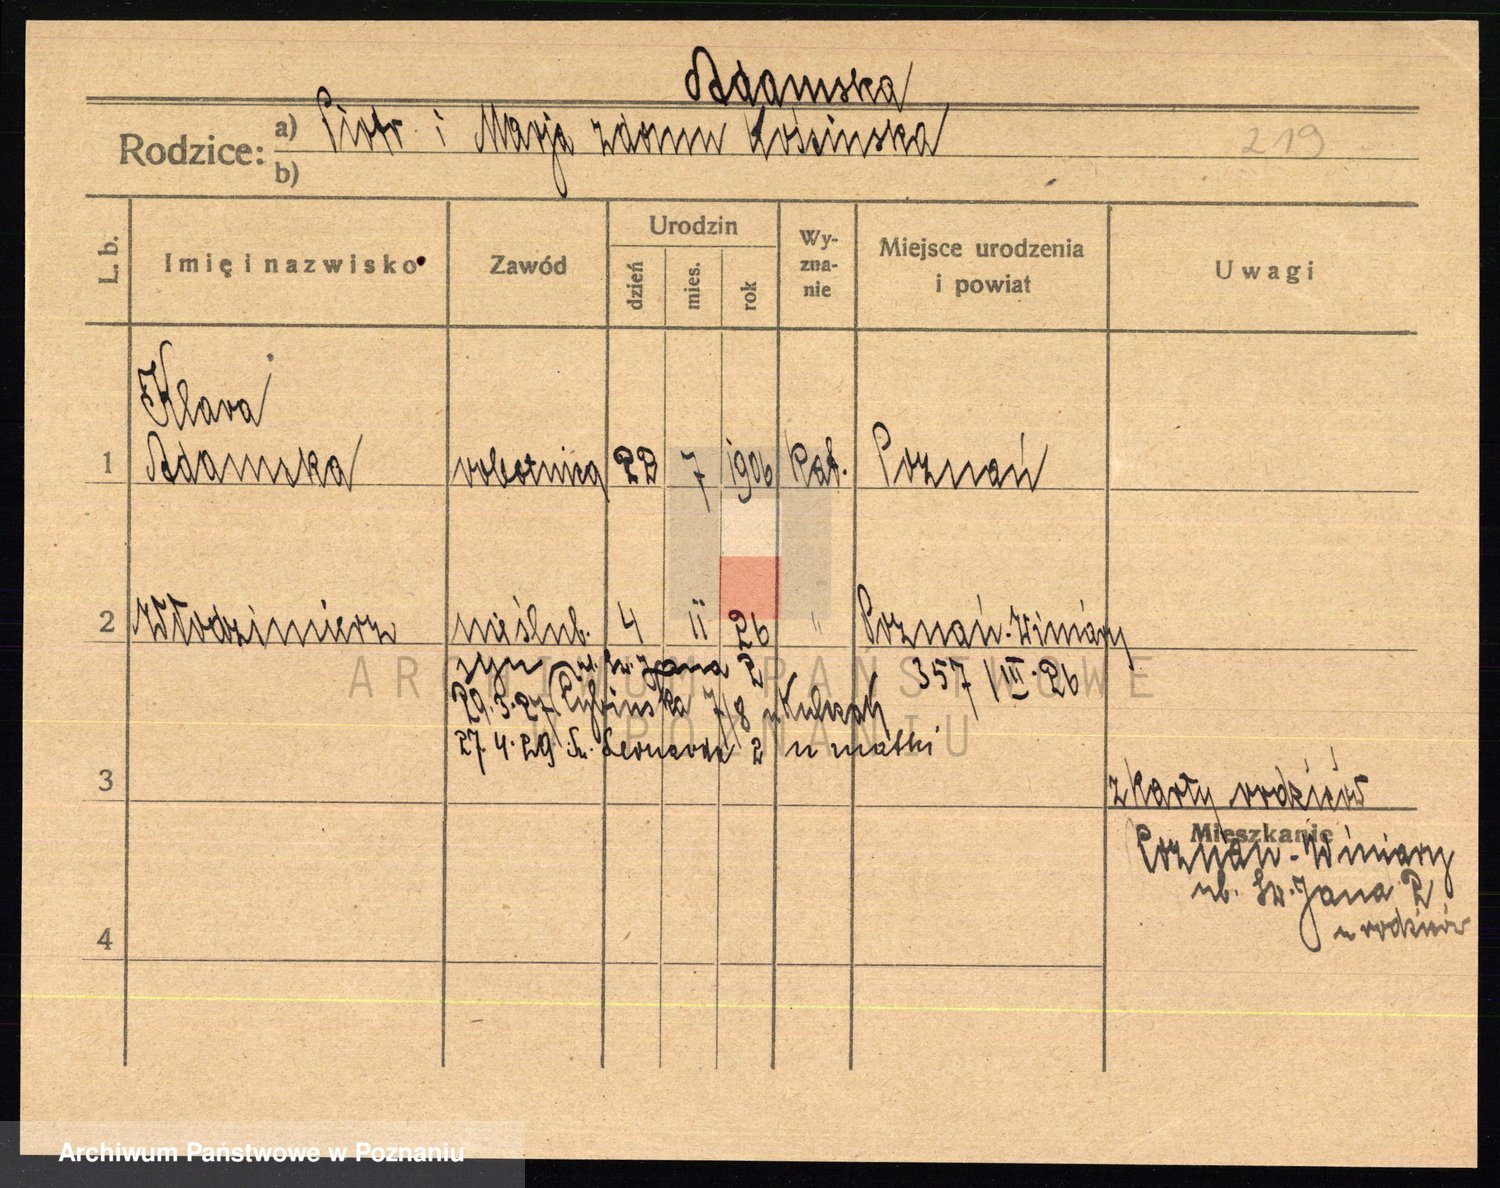 Adamska
Rodzice: a) Piotr i Marja z domu Łosińska
b)
219
L. b.
Imię i nazwisko
Zawód
Urodzin
dzień
mies.
rok
Wy-
zna-
nie
Miejsce urodzenia
i powiat
Uwagi
Klara
1 Adamska robotnica 22 7 1906 kat. Poznań
2 Włodzimierz nieślub. 4 II 26 " Poznań-Winiary
syn ul. Św. Jana 2 357/III.26
29.3.27 7/8 u
27.4.29 Św. Leonarda 2 u matki
3
z karty rodziców
Mieszkanie
Poznań-Winiary
ul. Św. Jana 2
u rodziców
4
ARCHIWUM PAŃSTWOWE
W POZNANIU
Archiwum Państwowe w Poznaniu